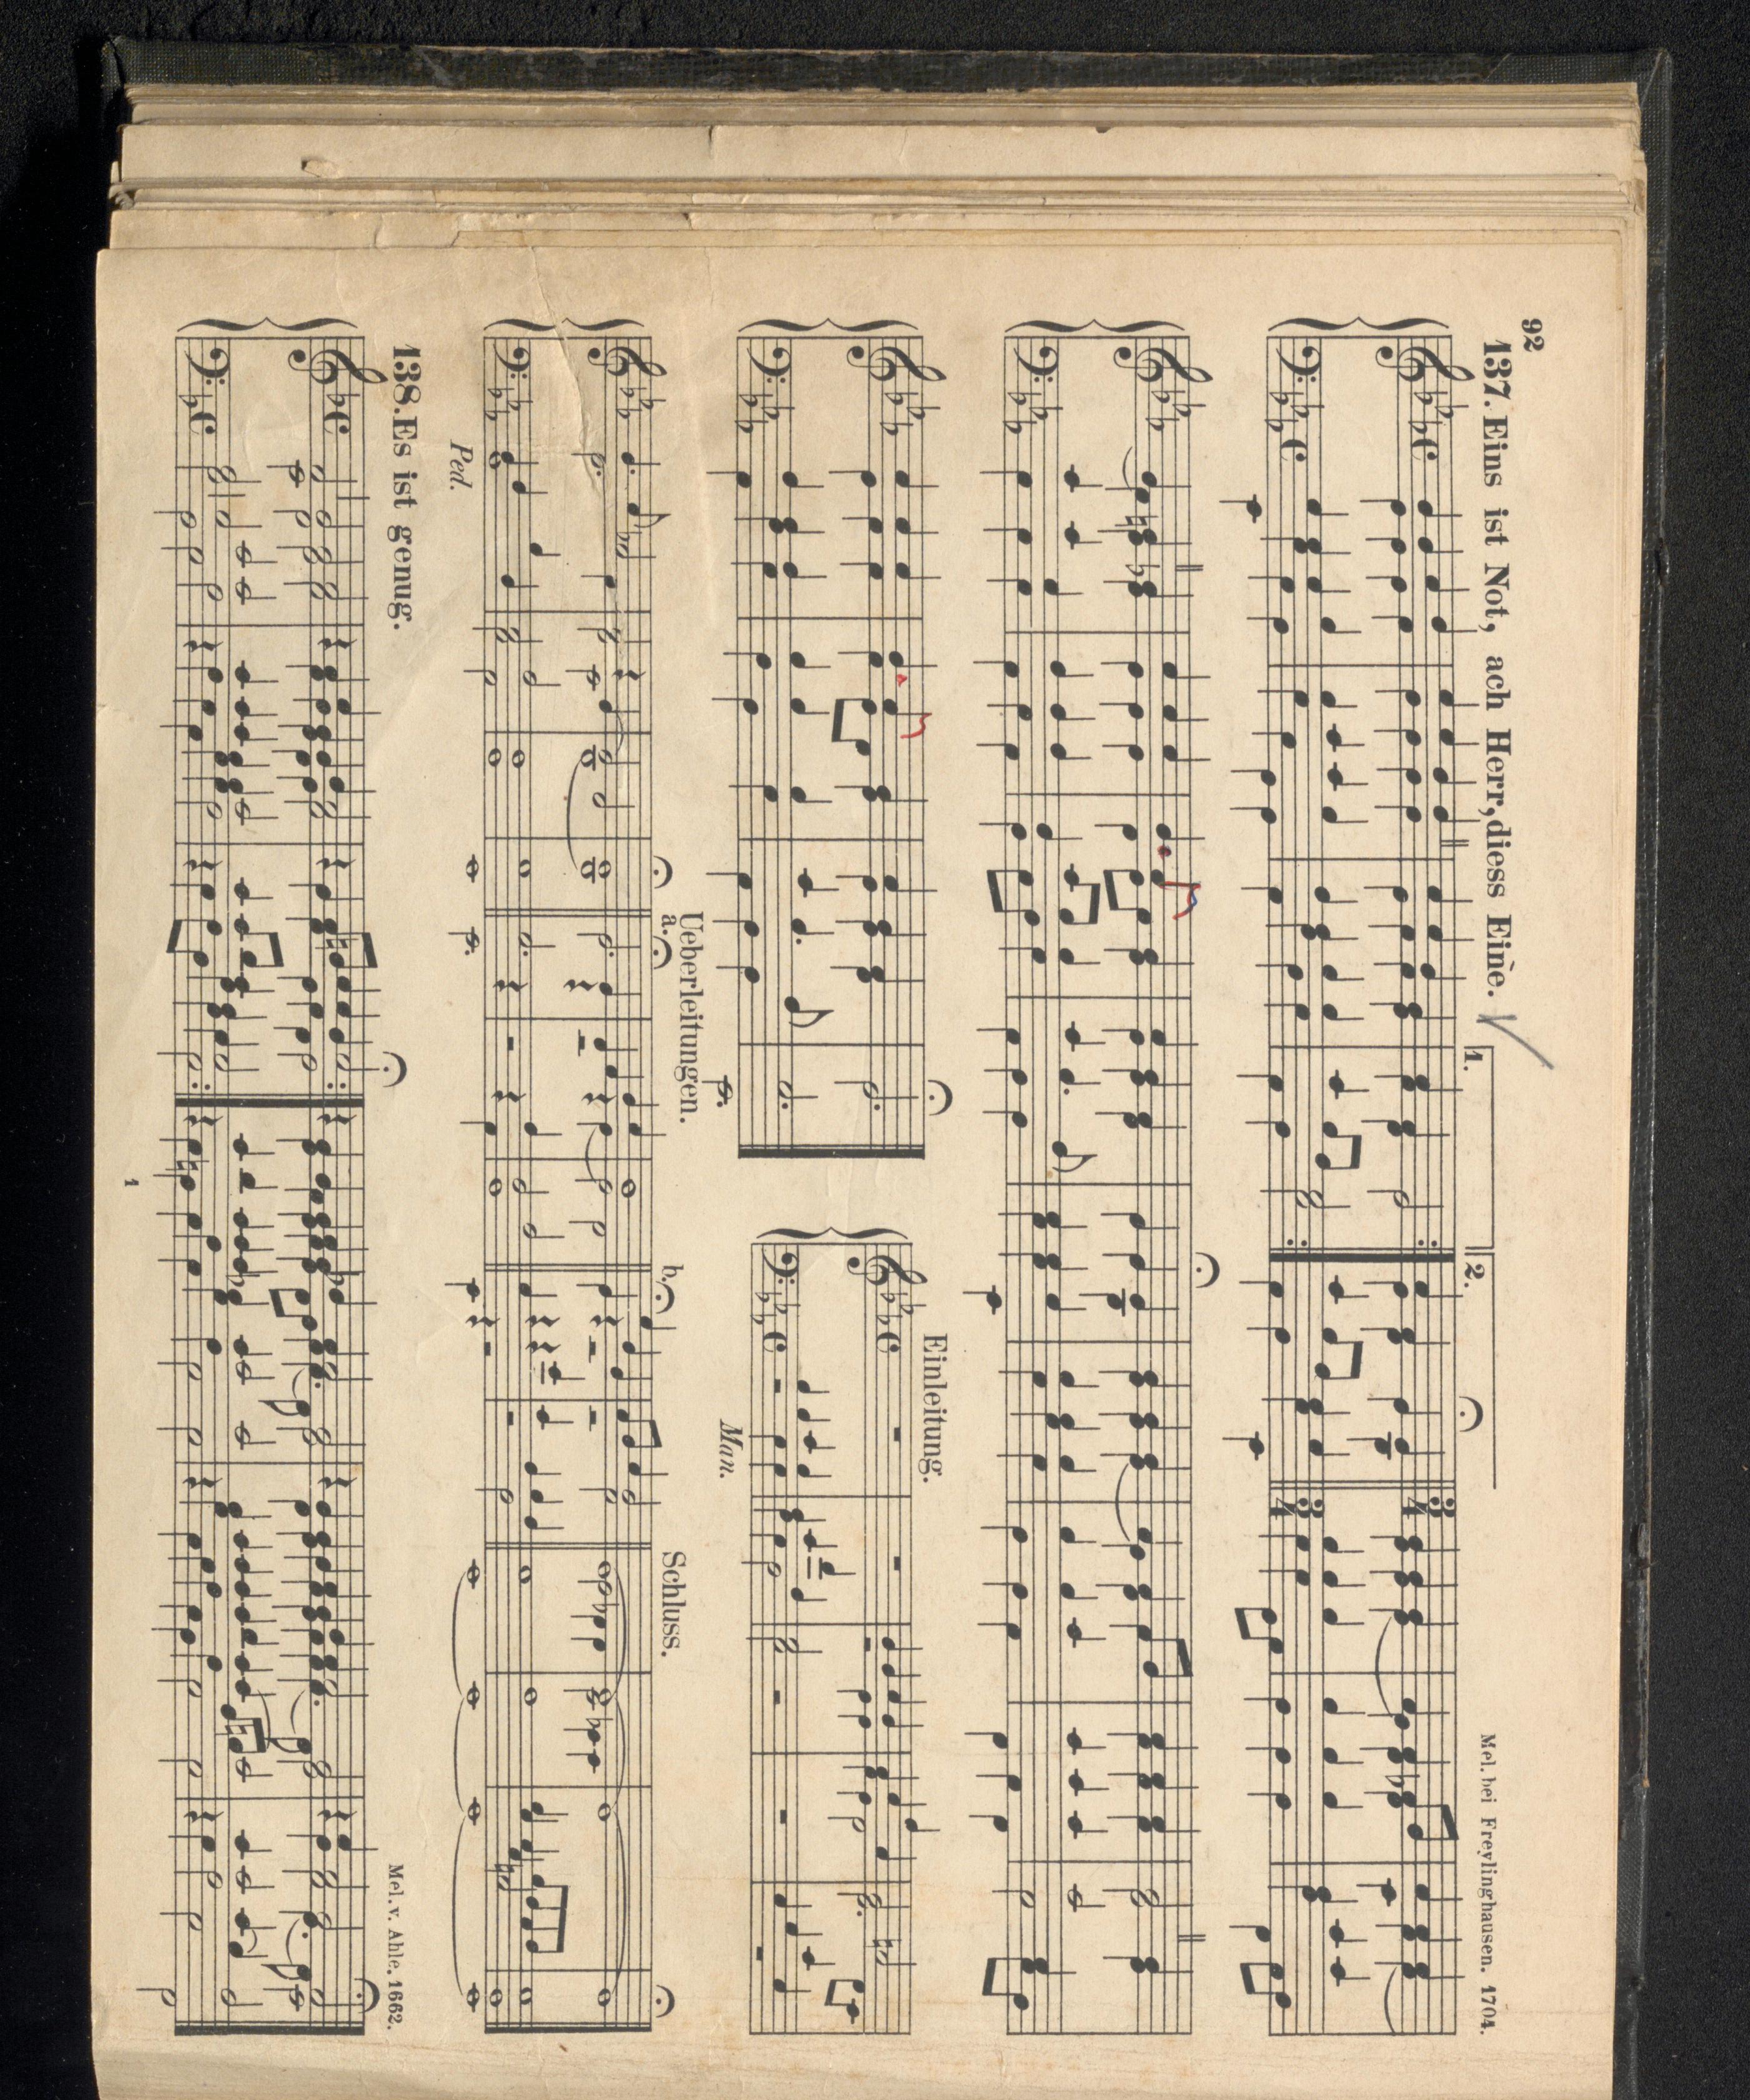 92
137. Eins ist Not, ach Herr, diess Eine.
Mel. bei Freylinghausen. 1704.
1.
2.
Einleitung.
Man.
Ueberleitungen.
a.
b.
Schluss.
Ped.
138. Es ist genug.
Mel. v. Ahle. 1662.
1